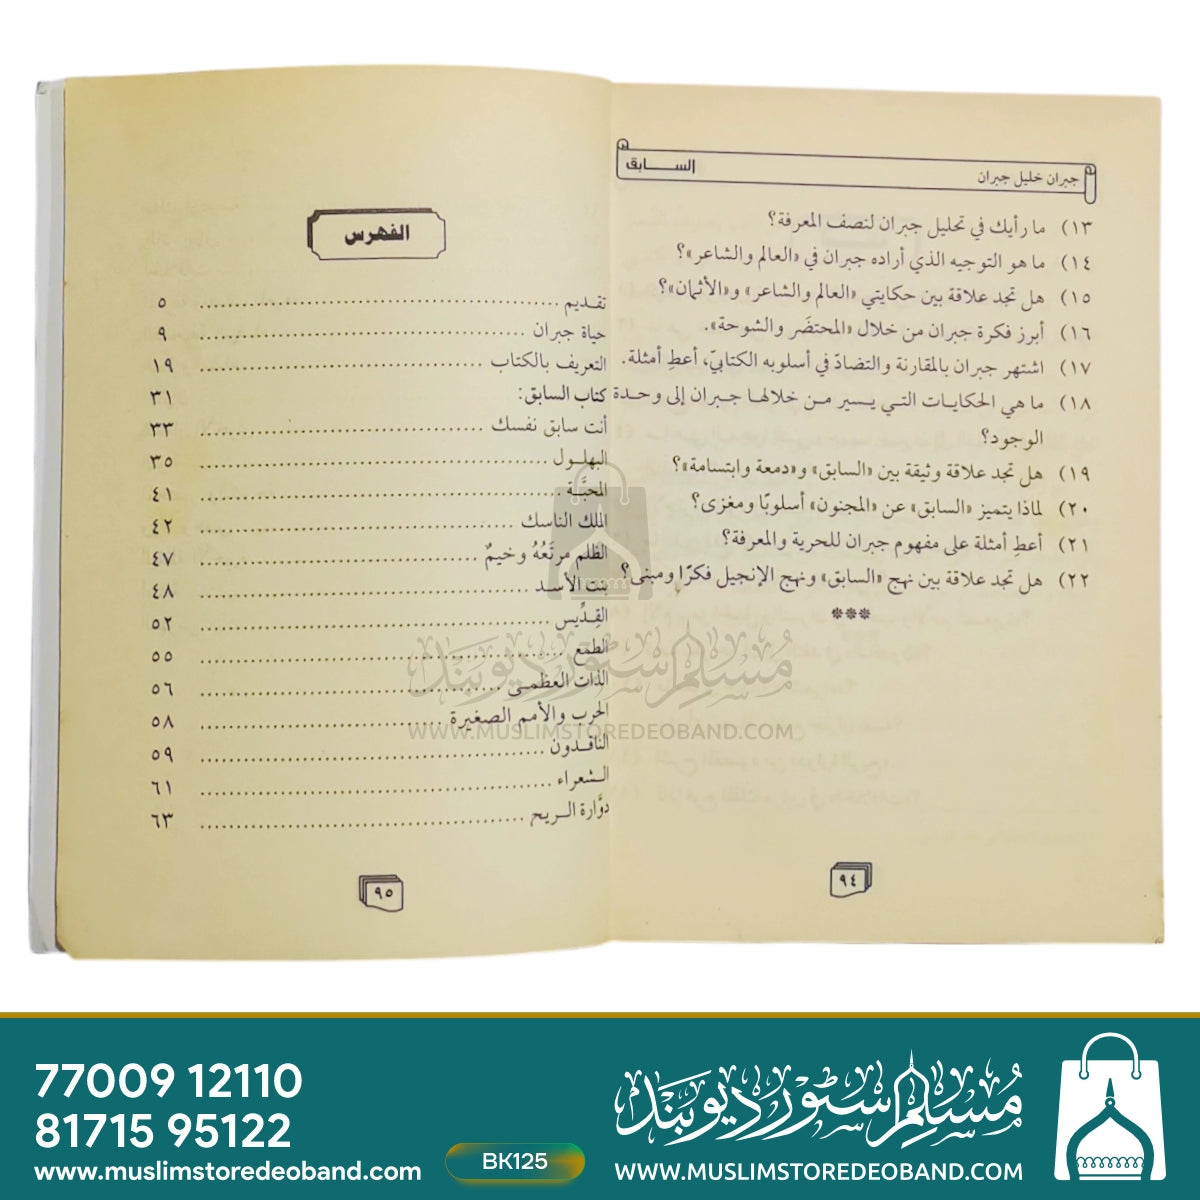 جبران خليل جبران السـابق
١٣) ما رأيك في تحليل جبران لنصف المعرفة؟
١٤) ما هو التوجيه الذي أراده جبران في «العالم والشاعر»؟
١٥) هل تجد علاقة بين حكايتي «العالم والشاعر» و«الأثمان»؟
١٦) أبرز فكرة جبران من خلال «المحتضَر والشوحة».
١٧) اشتهر جبران بالمقارنة والتضادّ في أسلوبه الكتابيّ، أعطِ أمثلة.
١٨) ما هي الحكايات التي يسير من خلالها جبران إلى وحدة
الوجود؟
١٩) هل تجد علاقة وثيقة بين «السابق» و«دمعة وابتسامة»؟
٢٠) لماذا يتميز «السابق» عن «المجنون» أسلوبًا ومغزى؟
٢١) أعطِ أمثلة على مفهوم جبران للحرية والمعرفة؟
٢٢) هل تجد علاقة بين نهج «السابق» ونهج الإنجيل فكرًا ومبنى؟
***
٩٤
الفهرس
تقديم ........ ٥
حياة جبران ........ ٩
التعريف بالكتاب ........ ١٩
كتاب السابق: ٣١
أنت سابق نفسك ........ ٣٣
البهلول ........ ٣٥
المحبَّة ........ ٤١
الملك الناسك ........ ٤٢
الظلم مرتَعُهُ وخيمٌ ........ ٤٧
بنت الأسد ........ ٤٨
القِدِّيس ........ ٥٢
الطمع ........ ٥٥
الذات العظمى ........ ٥٦
الحرب والأمم الصغيرة ........ ٥٨
الناقدون ........ ٥٩
الشعراء ........ ٦١
دوَّارة الريح ........ ٦٣
٩٥
مسلم سٹور دیوبند
WWW.MUSLIMSTOREDEOBAND.COM
77009 12110
81715 95122
www.muslimstoredeoband.com
BK125
مسلم سٹور دیوبند
WWW.MUSLIMSTOREDEOBAND.COM